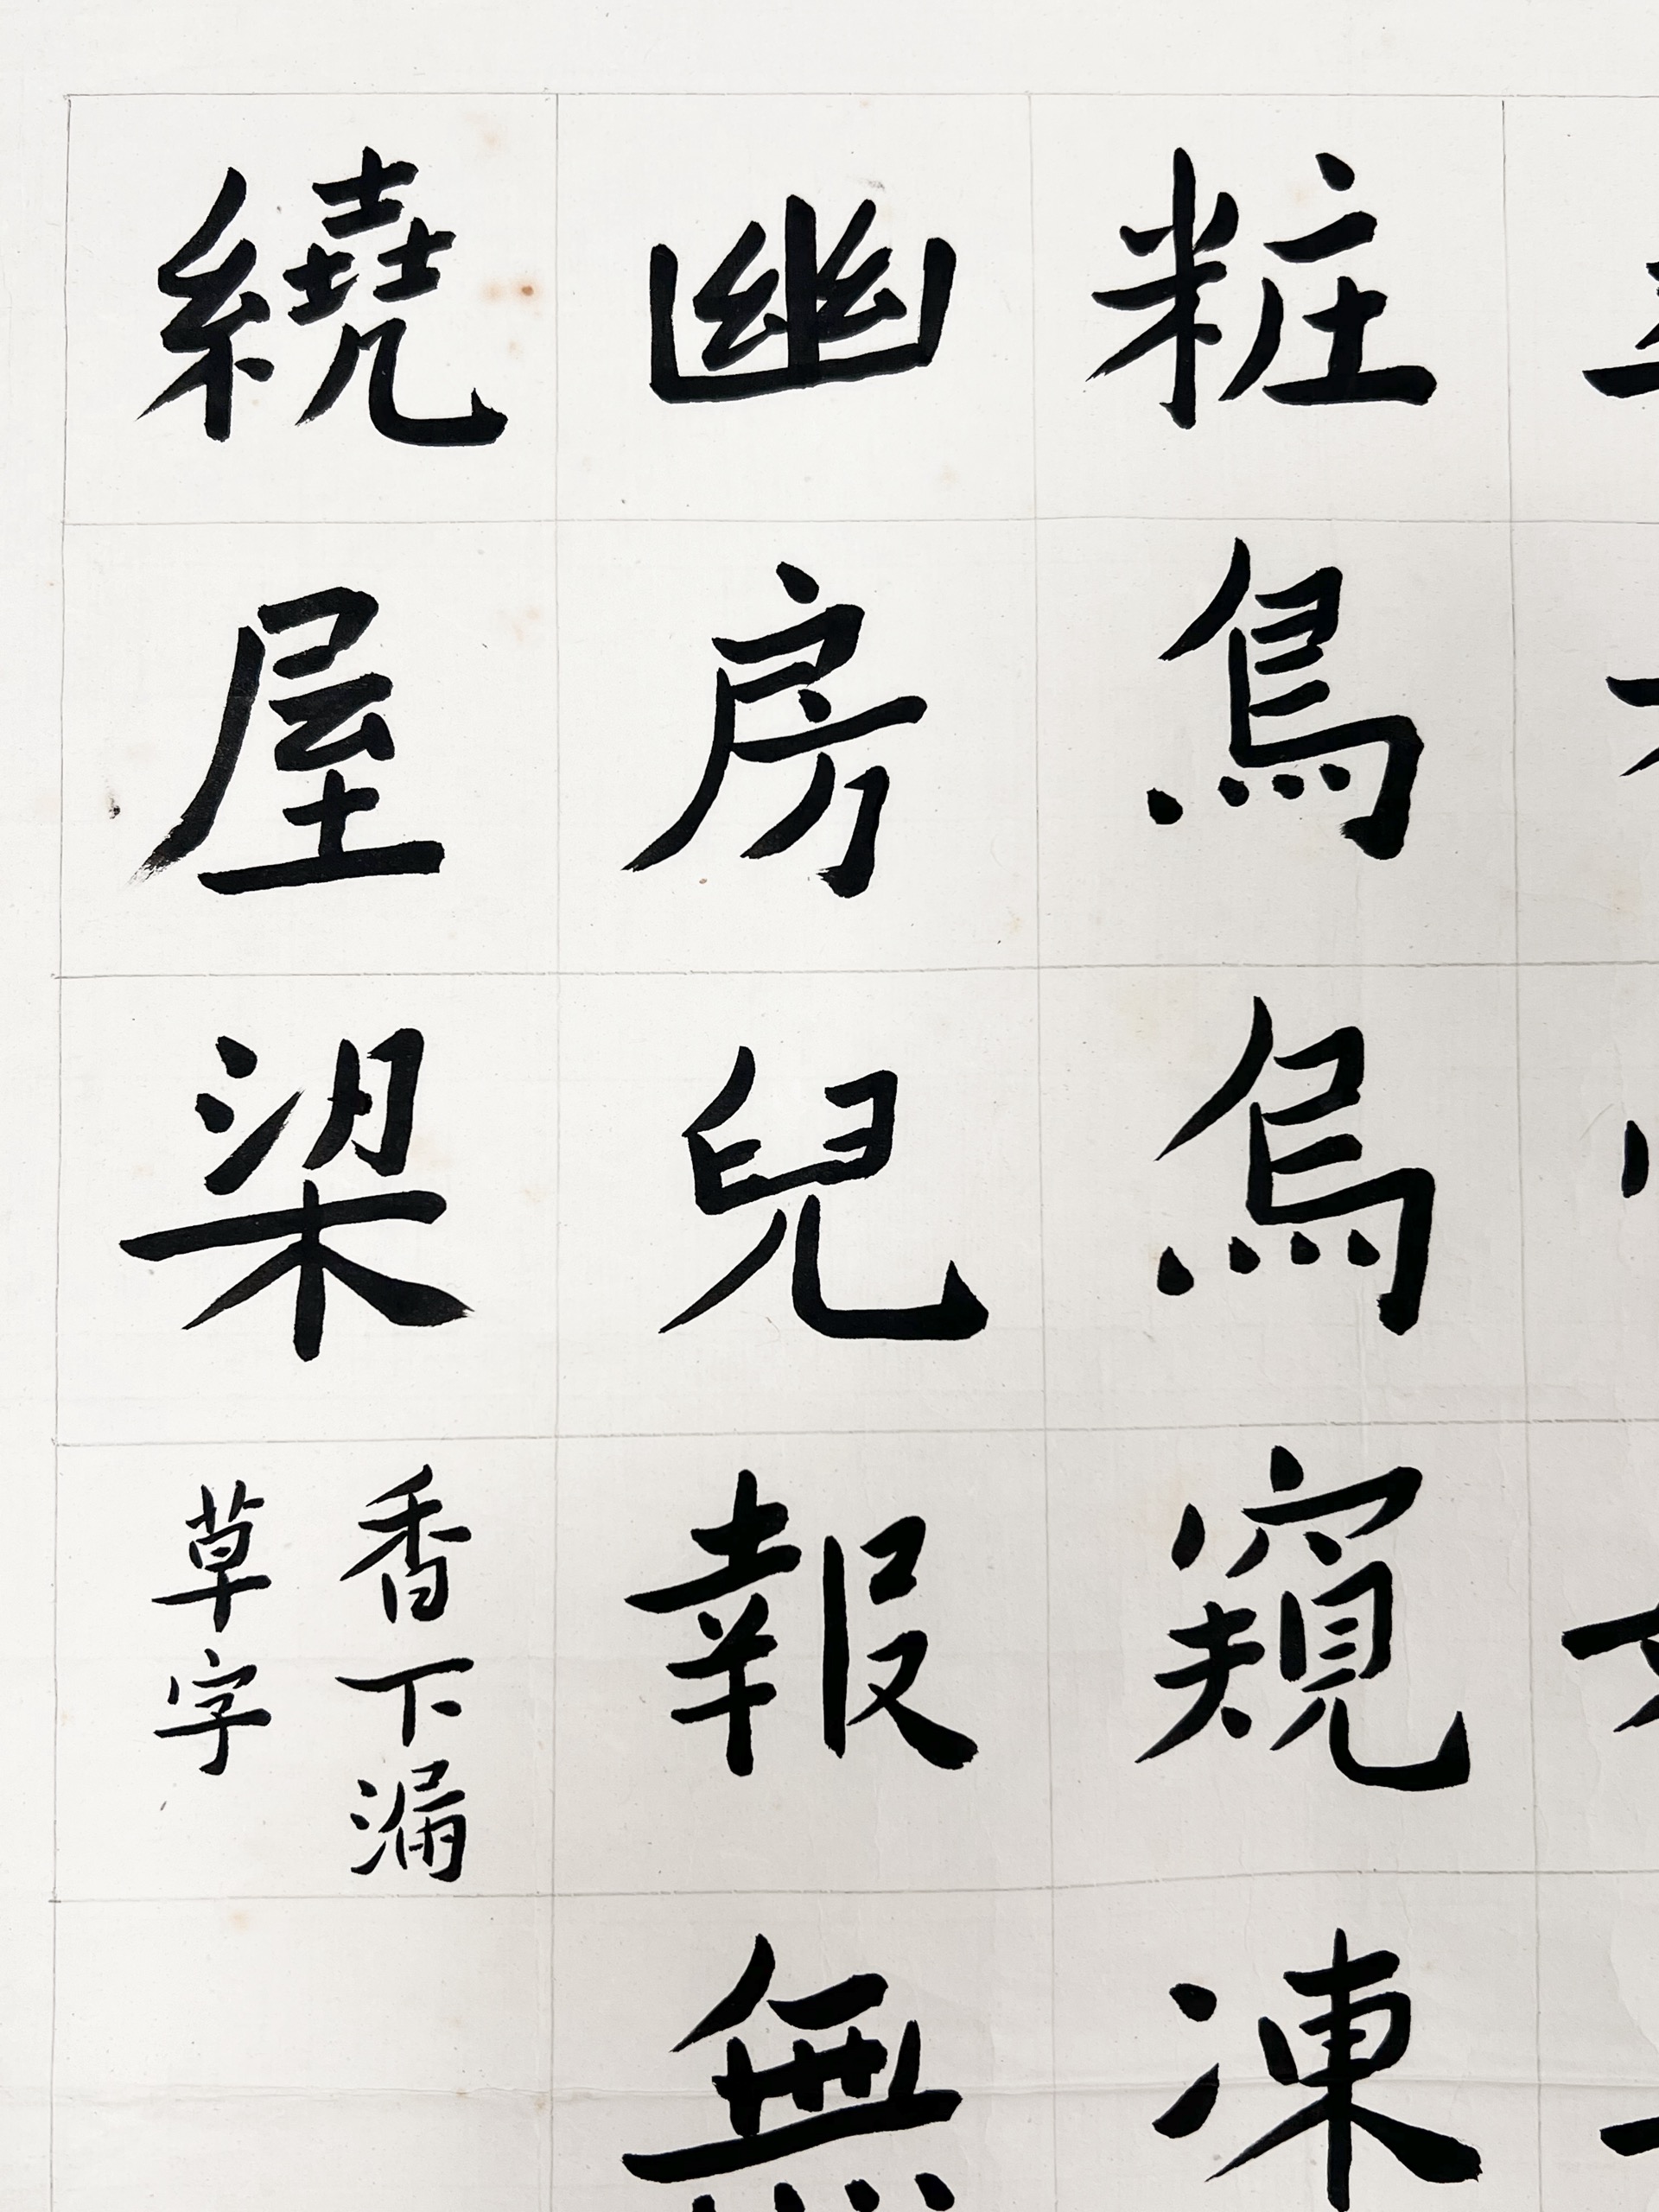 粧鳥烏窺凍
幽房兒報無
繞屋梁
香下漏
草字